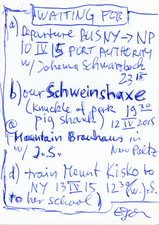 WAITING FOR
a) Departure BUS NY → NP
10 IV 15 PORT AUTHORITY
w/ Johanna Schwarzbeck
23 15
b) our Schweinshaxe
(Knuckle of pork 19 30
pig shank) 12 IV 2015
@
Mountain Brauhaus in
w/ J.S. New Paltz
d) train Mount Kisko to
NY 13 IV 15 12 38 (w. J.S.
to her school)